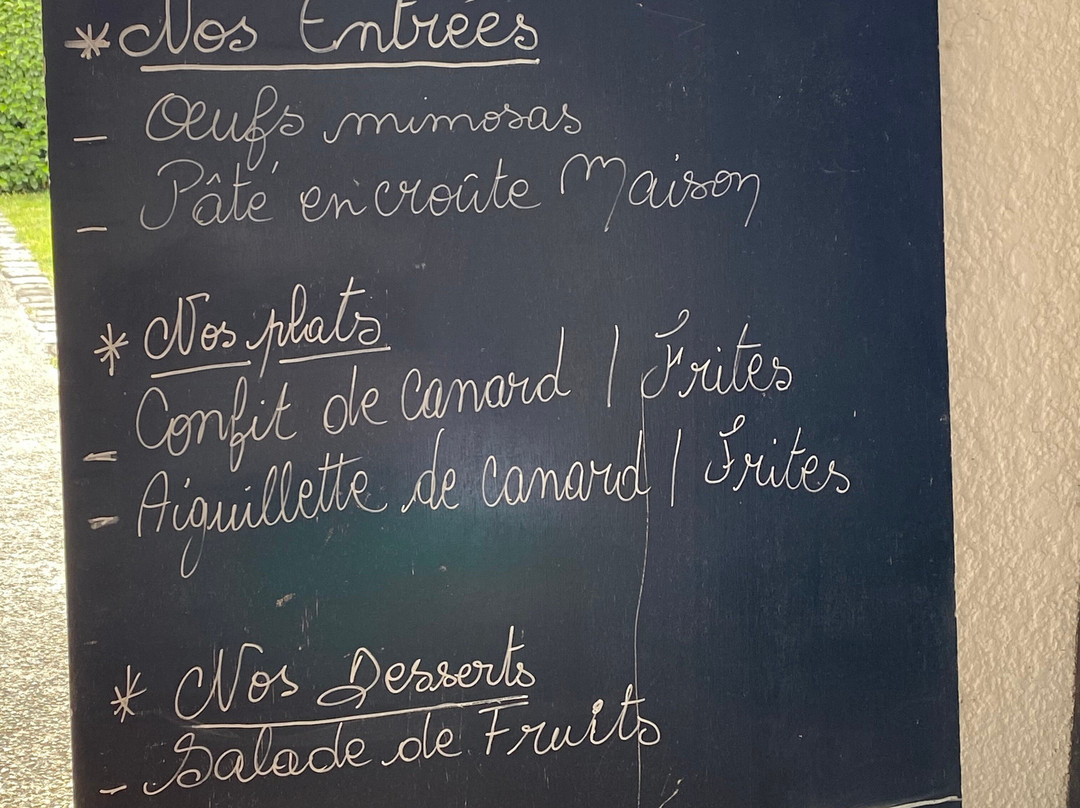 * Nos Entrées
- Œufs mimosas
- Pâté en croûte Maison
* Nos plats
- Confit de Canard | Frites
- Aiguillette de canard | Frites
* Nos Desserts
- Salade de Fruits